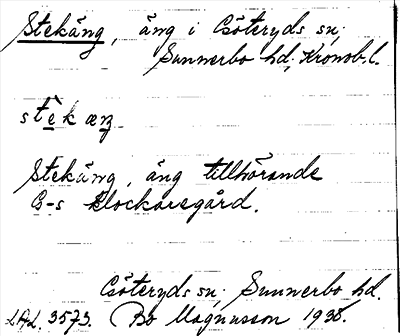 Stekäng, äng i Göteryds sn;
Sunnerbo hd; Kronob. l.
stèkæŋ
Stekäng, äng tillhörande
G-s klockaregård.
Göteryds sn; Sunnerbo hd.
3573. Bo Magnusson 1938.